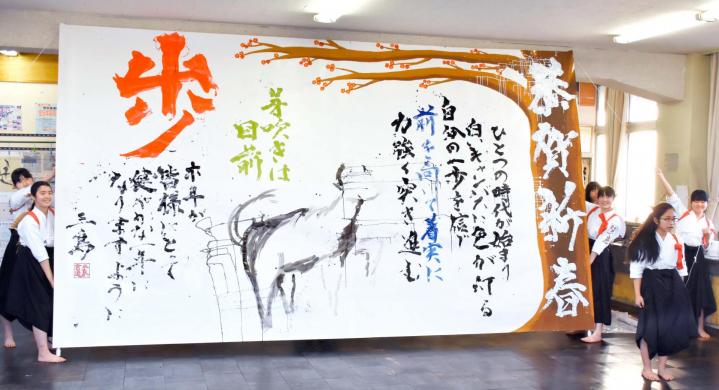 恭賀新春
ひとつの時代が始まり
白いキャンバスに色が灯る
自分の一歩を信じ
前を向いて着実に
力強く突き進む
芽吹きは
目前
歩
本年が
皆様にとって
健やかな一年に
なりますように